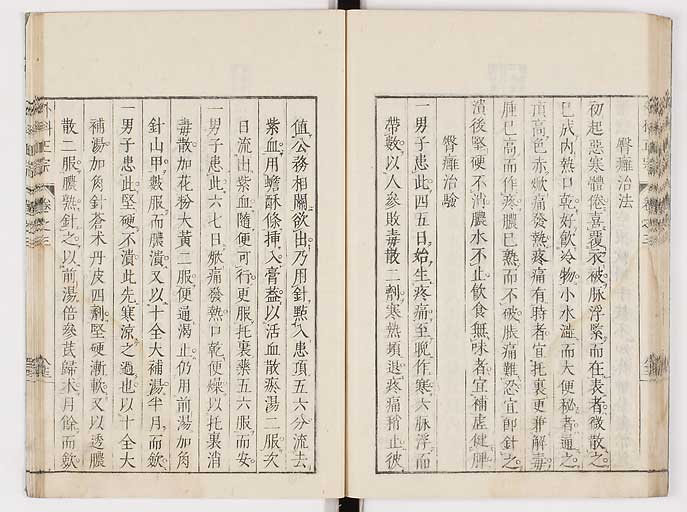 臀癰治法
初起惡寒體倦喜覆衣被脉浮緊而在表者微散之
已成内熱口乾好飲冷物小水澁而大便秘者通之
頂高色赤焮痛發熱疼痛有時者宜托裏更兼解毒
腫已高而作疼膿已熟而不破脹痛難忍宜即針之
潰後堅硬不消膿水不止飲食無味者宜補虚健脾
臀癰治驗
一男子患此四五日始生疼痛至晩作寒六脉浮而
帶數以人參敗毒散二劑寒熱頓退疼痛稍止彼
值公務相關欲出乃用針㸃入患頂五六分流去
紫血用蟾酥條挿入膏蓋以活血散瘀湯二服次
日流出紫血隨便可行更服托裏藥五六服而安
一男子患此六七日焮痛發熱口乾便燥以托裏消
毒散加花粉大黃二服便通渴止仍用前湯加角
針山甲數服而膿潰又以十全大補湯半月而斂
一男子患此堅硬不潰此先寒涼之過也以十全大
補湯加角針蒼朮丹皮四劑堅硬漸軟又以透膿
散二服膿熟針之以前湯倍參芪歸朮月餘而斂
外科正宗 卷之三